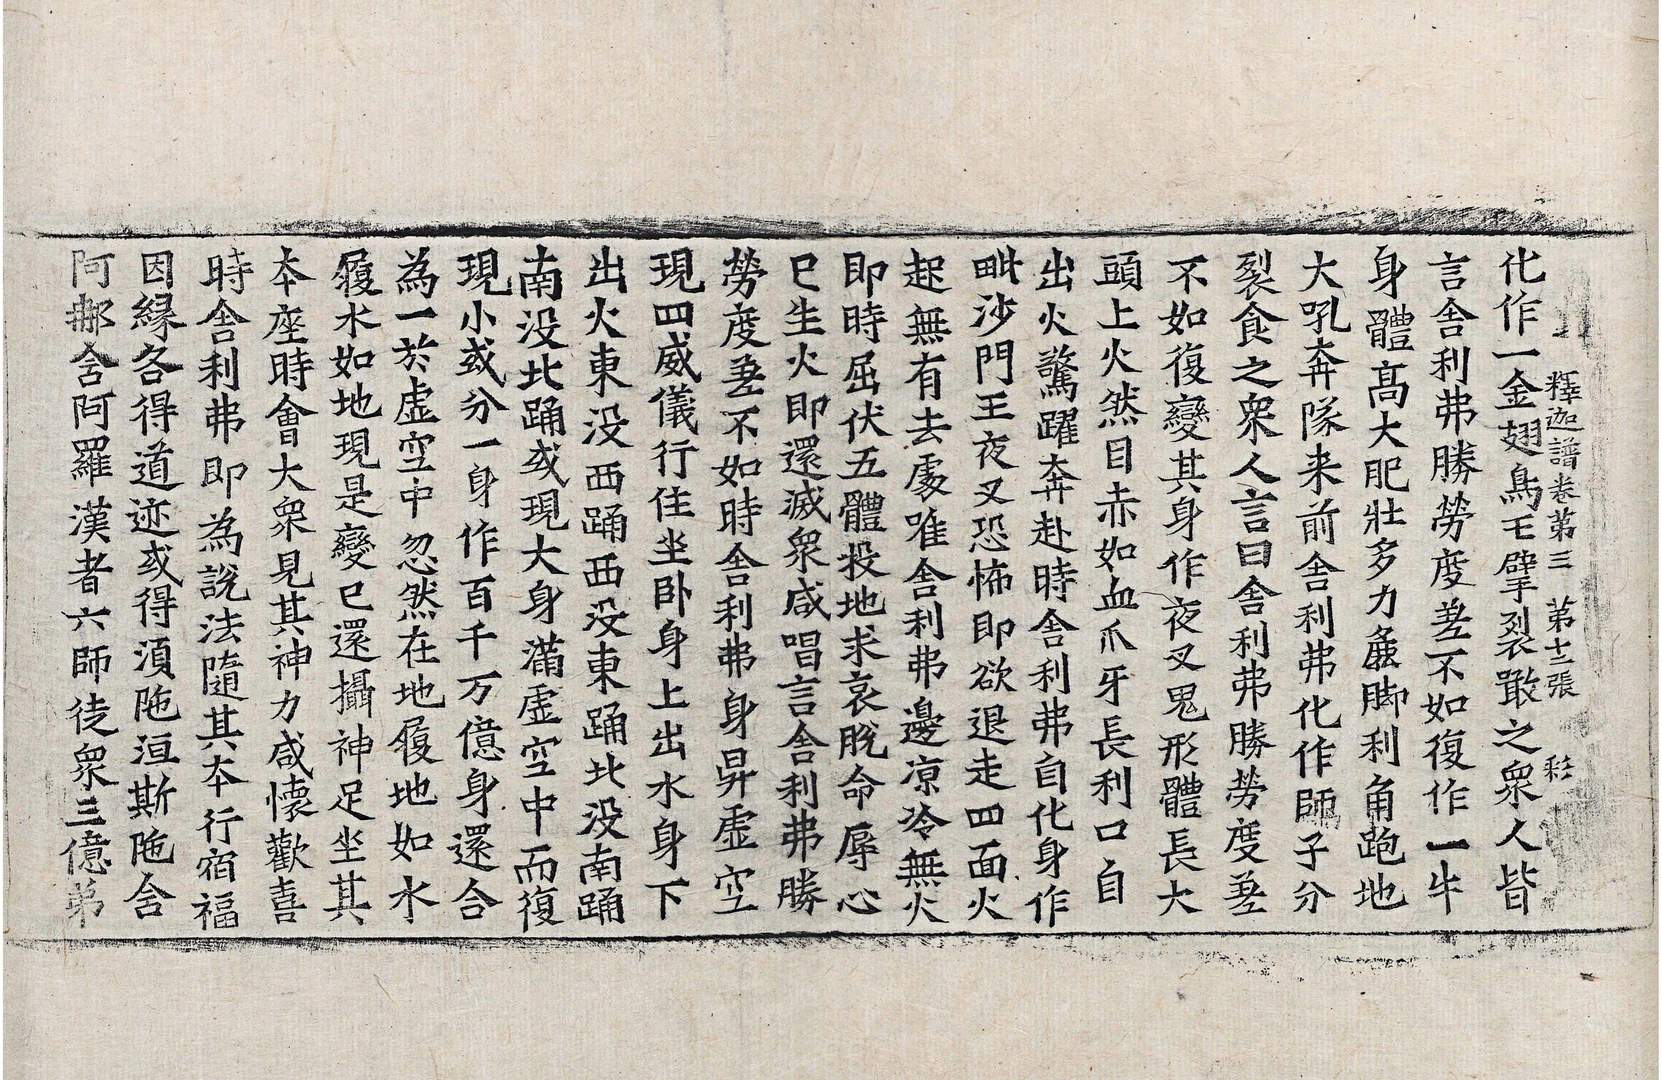 釋迦譜卷第三　第十二張　彩
化作一金翅鳥王擘裂噉之衆人皆
言舍利弗勝勞度差不如復作一牛
身體髙大肥壯多力麁脚利角跑地
大吼奔隊来前舍利弗化作師子分
裂食之衆人言曰舍利弗勝勞度差
不如復變其身作夜叉鬼形體長大
頭上火然目赤如血爪牙長利口自
出火驚躍奔赴時舍利弗自化身作
毗沙門王夜叉恐怖即欲退走四面火
起無有去處唯舍利弗邊凉冷無火
即時屈伏五體投地求哀脫命辱心
已生火即還滅衆咸唱言舍利弗勝
勞度差不如時舍利弗身昇虛空
現四威儀行住坐卧身上出水身下
出火東没西踊西没東踊北没南踊
南没北踊或現大身滿虛空中而復
現小或分一身作百千万億身還合
為一於虛空中忽然在地履地如水
履水如地現是變已還攝神足坐其
本座時會大衆見其神力咸懷歡喜
時舍利弗即為說法隨其本行宿福
因縁各得道迹或得湏陁洹斯陁舍
阿那舍阿羅漢者六師徒衆三億弟